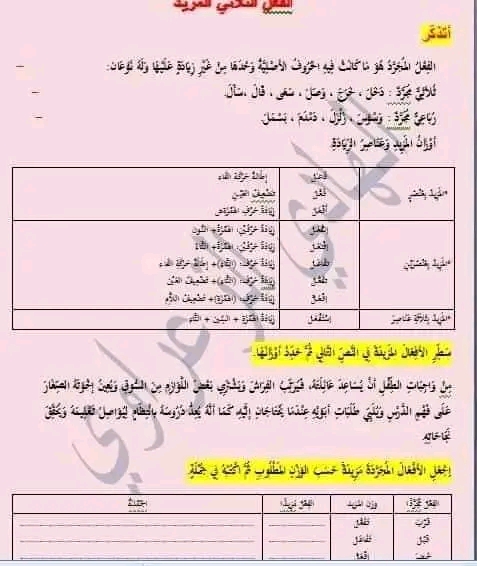 الفعل الثلاثي المزيد
أتذكّر
الفِعْلُ المُجَرَّدُ هُوَ مَا كَانَتْ فِيهِ الحُرُوفُ الأَصْلِيَّةُ وَحْدَهَا مِنْ غَيْرِ زِيَادَةٍ عَلَيْهَا وَلَهُ نَوْعَانِ:
ثُلَاثِيٌّ مُجَرَّدٌ : دَخَلَ ، خَرَجَ ، وَصَلَ ، سَعَى ، قَالَ ، سَأَلَ.
رُبَاعِيٌّ مُجَرَّدٌ : وَسْوَسَ ، زَلْزَلَ ، دَمْدَمَ ، بَسْمَلَ.
أَوْزَانُ المَزِيدِ وَعَنَاصِرُ الزِّيَادَةِ:
*المَزِيدُ بِعُنْصُرٍ فَاعَلَ إِطَالَةُ حَرَكَةِ الفَاءِ
فَعَّلَ تَضْعِيفُ العَيْنِ
أَفْعَلَ زِيَادَةُ حَرْفِ الهَمْزَةِ
*المَزِيدُ بِعُنْصُرَيْنِ اِنْفَعَلَ زِيَادَةُ حَرْفَيْنِ: الهَمْزَةُ+ النُّون
اِفْتَعَلَ زِيَادَةُ حَرْفَيْنِ: الهَمْزَةُ+ التَّاءُ
تَفَاعَلَ زِيَادَةُ حَرْفِ: (التَّاءُ)+ إِطَالَةُ حَرَكَةِ الفَاءِ
تَفَعَّلَ زِيَادَةُ حَرْفِ: (التَّاءُ)+ تَضْعِيفُ العَيْنِ
اِفْعَلَّ زِيَادَةُ حَرْفِ: (الهَمْزَةُ)+ تَضْعِيفُ اللَّامِ
*المَزِيدُ بِثَلَاثَةِ عَنَاصِرَ اِسْتَفْعَلَ زِيَادَةُ الهَمْزَةُ + السِّين + التَّاءُ
سَطِّرِ الأَفْعَالَ المَزِيدَةَ فِي النَّصِّ التَّالِي ثُمَّ حَدِّدْ أَوْزَانَهَا.
مِنْ وَاجِبَاتِ الطِّفْلِ أَنْ يُسَاعِدَ عَائِلَتَهُ، فَيُرَتِّبَ الفِرَاشَ وَيَشْتَرِيَ بَعْضَ اللَّوَازِمِ مِنَ السُّوقِ وَيُعِينَ إِخْوَتَهُ الصِّغَارَ
عَلَى فَهْمِ الدَّرْسِ وَيُلَبِّيَ طَلَبَاتِ أَبَوَيْهِ عِنْدَمَا يَحْتَاجَانِ إِلَيْهِ كَمَا أَنَّهُ يُعِدُّ دُرُوسَهُ بِانْتِظَامٍ لِيُوَاصِلَ تَعْلِيمَهُ وَيُحَقِّقَ
نَجَاحَاتِهِ
اِجْعَلِ الأَفْعَالَ المُجَرَّدَةَ مَزِيدَةً حَسَبَ الوَزْنِ المَطْلُوبِ ثُمَّ اكْتُبْهُ فِي جُمْلَةٍ.
الفِعْلُ مُجَرَّدًا وَزْنُ المَزِيدِ الفِعْلُ مَزِيدًا الجُمْلَةُ
قَرُبَ تَفَعَّلَ
قَبِلَ تَفَاعَلَ